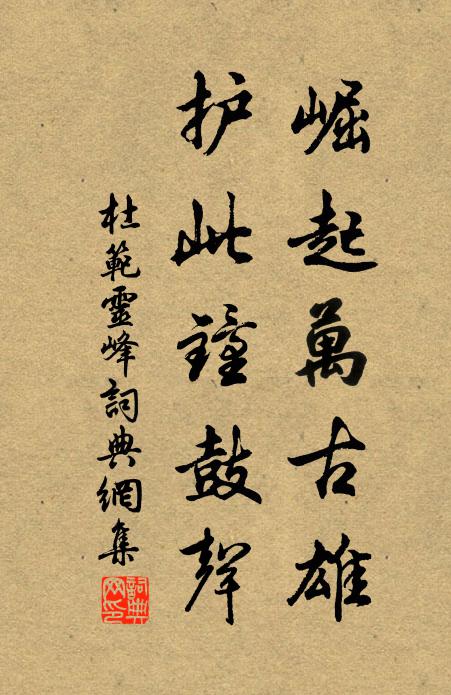 崛起萬古雄
护此鐘鼓聲
杜範靈峰詞典網集
詞典網印